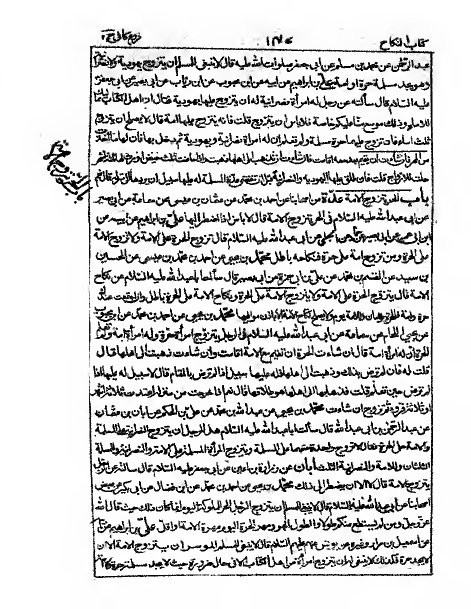 كتاب النكاح
عبد الرحمن عن محمد بن مسلم عن ابي جعفر صلوات الله عليه قال لا ينبغي للمسلم ان يتزوج يهودية ولا نصرانية
وهو يجد مسلمة حرة او امة علي بن ابراهيم عن ابيه عن ابن محبوب عن ابن رئاب عن ابي بصير عن ابي جعفر
عليه السلام قال سألته عن رجل له امرأة نصرانية له ان يتزوج عليها يهودية فقال ان اهل الكتاب مماليك
للامام وذلك موسع منا عليكم خاصة فلا باس ان يتزوج قلت فانه يتزوج عليها امة قال لا يصلح ان يتزوج
ثلث اماء فان تزوج عليها حرة مسلمة ولم تعلم ان له امرأة نصرانية ويهودية ثم دخل بها فان لها ما اخذت
من المهر فان شاءت ان تقيم بعد معه اقامت وان شاءت ان تذهب الى اهلها ذهبت
حلت للازواج قلت فان طلق عليها اليهودية والنصرانية قبل ان تنقضي عدة المسلمة له عليها سبيل ان يردها الى منزله قال نعم
باب الحر يتزوج الامة عدة من اصحابنا عن احمد بن محمد عن عثمان بن عيسى عن سماعة عن ابي بصير
عن ابي عبد الله عليه السلام في الحر يتزوج الامة قال لا باس اذا اضطر اليها علي بن ابراهيم عن ابيه عن
ابن ابي عمير عن حماد عن الحلبي عن ابي عبد الله عليه السلام قال تزوج الحرة على الامة ولا تزوج الامة
على الحرة ومن تزوج امة على حرة فنكاحه باطل محمد بن يحيى عن احمد بن محمد بن عيسى عن الحسين
بن سعيد عن القسم بن محمد عن علي بن ابي حمزة عن ابي بصير قال سألت ابا عبد الله عليه السلام عن نكاح
الامة قال يتزوج الحرة على الامة ولا يتزوج الامة على الحرة ونكاح الامة على الحرة باطل وان اجتمعت عندك
محمد بن يحيى عن احمد بن محمد عن ابن محبوب
عن يحيى اللحام عن سماعة عن ابي عبد الله عليه السلام في رجل يتزوج امرأة حرة وله امرأة امة ولم تعلم
الحرة ان له امرأة امة قال ان شاءت الحرة ان تقيم مع الامة اقامت وان شاءت ذهبت الى اهلها قال
قلت له فان لم ترض بذلك وذهبت الى اهلها فله عليها سبيل اذا لم ترض بالمقام قال لا سبيل له عليها اذا
لم ترض حين تعلم قلت فذهابها الى اهلها هو طلاقها قال نعم اذا خرجت من منزله اعتدت ثلثة اشهر
او ثلثة قروء ثم تزوج ان شاءت محمد بن يحيى عن عبد الله بن محمد عن علي بن الحكم عن ابان بن عثمان
عن عبد الرحمن بن ابي عبد الله قال سألت ابا عبد الله عليه السلام هل للرجل ان يتزوج النصرانية على المسلمة
والامة على الحرة فقال لا تزوج واحدة منهما على المسلمة وتزوج المسلمة على الامة والنصرانية وللمسلمة
الثلثان وللامة والنصرانية الثلث ابان عن زرارة بن اعين عن ابي جعفر عليه السلام قال سألته عن الرجل
يتزوج الامة قال لا الا ان يضطر الى ذلك محمد بن يحيى عن احمد بن محمد عن ابن فضال عن ابن بكير عن بعض
اصحابنا عن ابي عبد الله عليه السلام قال لا ينبغي ان يتزوج الرجل الحر المملوكة اليوم انما كان ذلك حيث قال الله
عز وجل ومن لم يستطع منكم طولا والطول المهر ومهر الحرة اليوم مهر الامة او اقل علي بن ابراهيم عن ابيه
عن اسمعيل بن مرار وغيره عن يونس عنهم عليهم السلام قال لا ينبغي للمسلم الموسر ان يتزوج الامة الا ان
لا يجد حرة فكذلك لا ينبغي له ان يتزوج امرأة من اهل الكتاب الا في حال ضرورة حيث لا يجد مسلمة حرة ولا امة